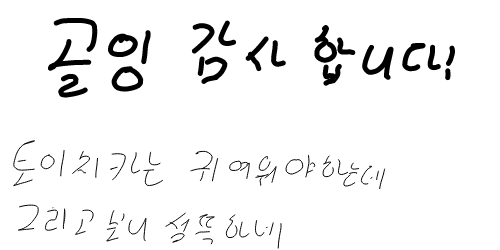 골잉 감사합니다!
토이치카는 귀여워야하는데
그리고보니 섬뜩하네